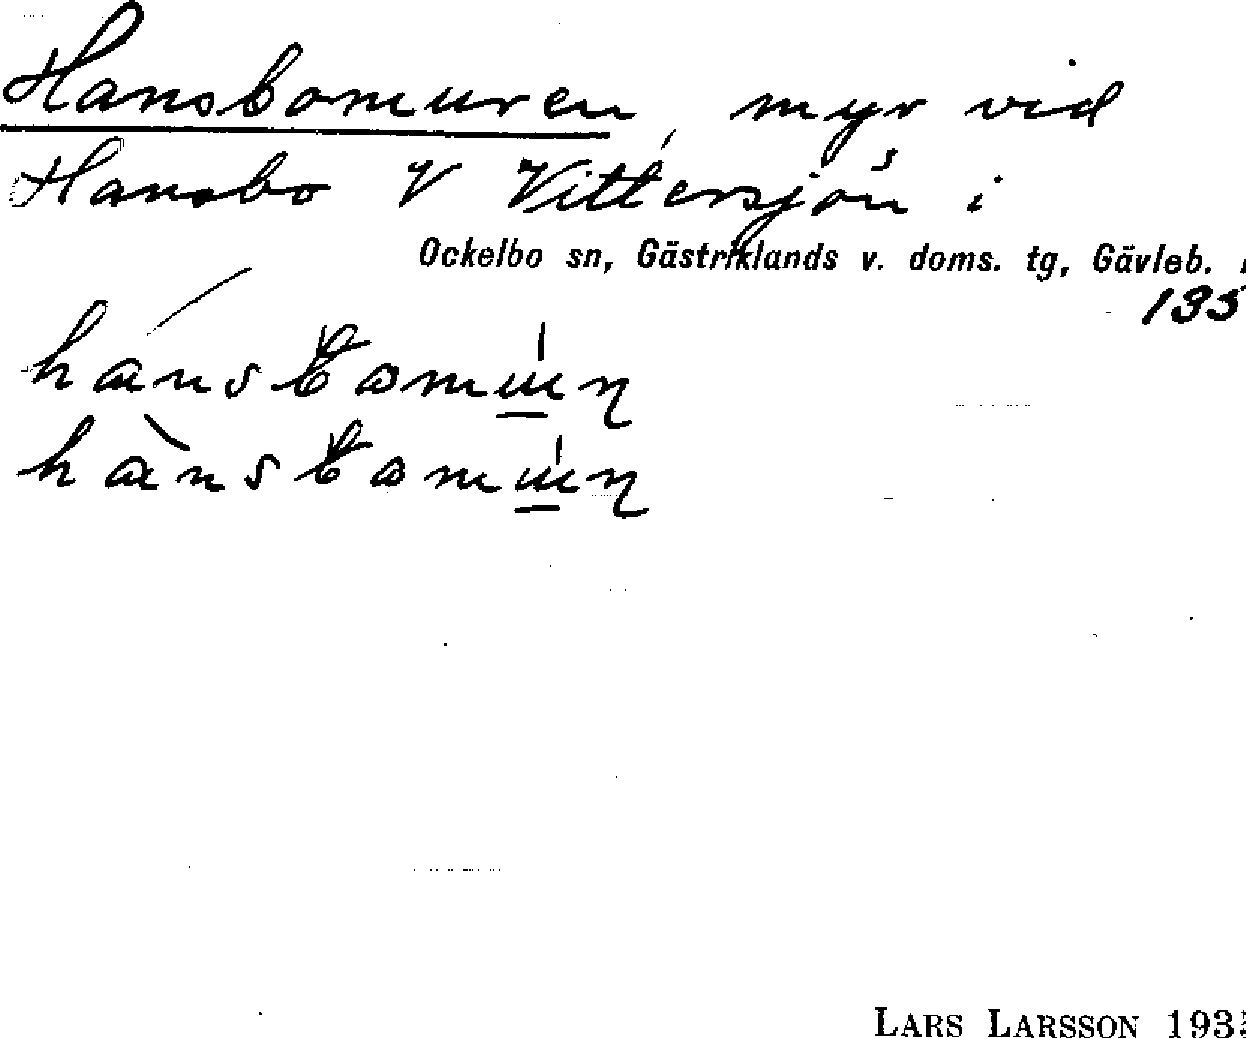 Hansbomuren, myr vid
Hansbo V Vittersjön i
Ockelbo sn, Gästriklands v. doms. tg, Gävleb.
135
LARS LARSSON 193